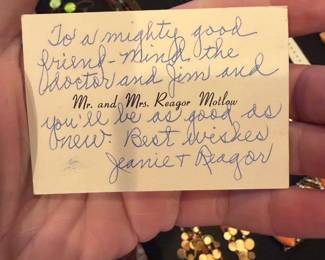 To a mighty good
friend - Mind the
doctor and Jim and
Mr. and Mrs. Reagor Motlow
you'll be as good as
new. Best wishes
Jeanie + Reagor